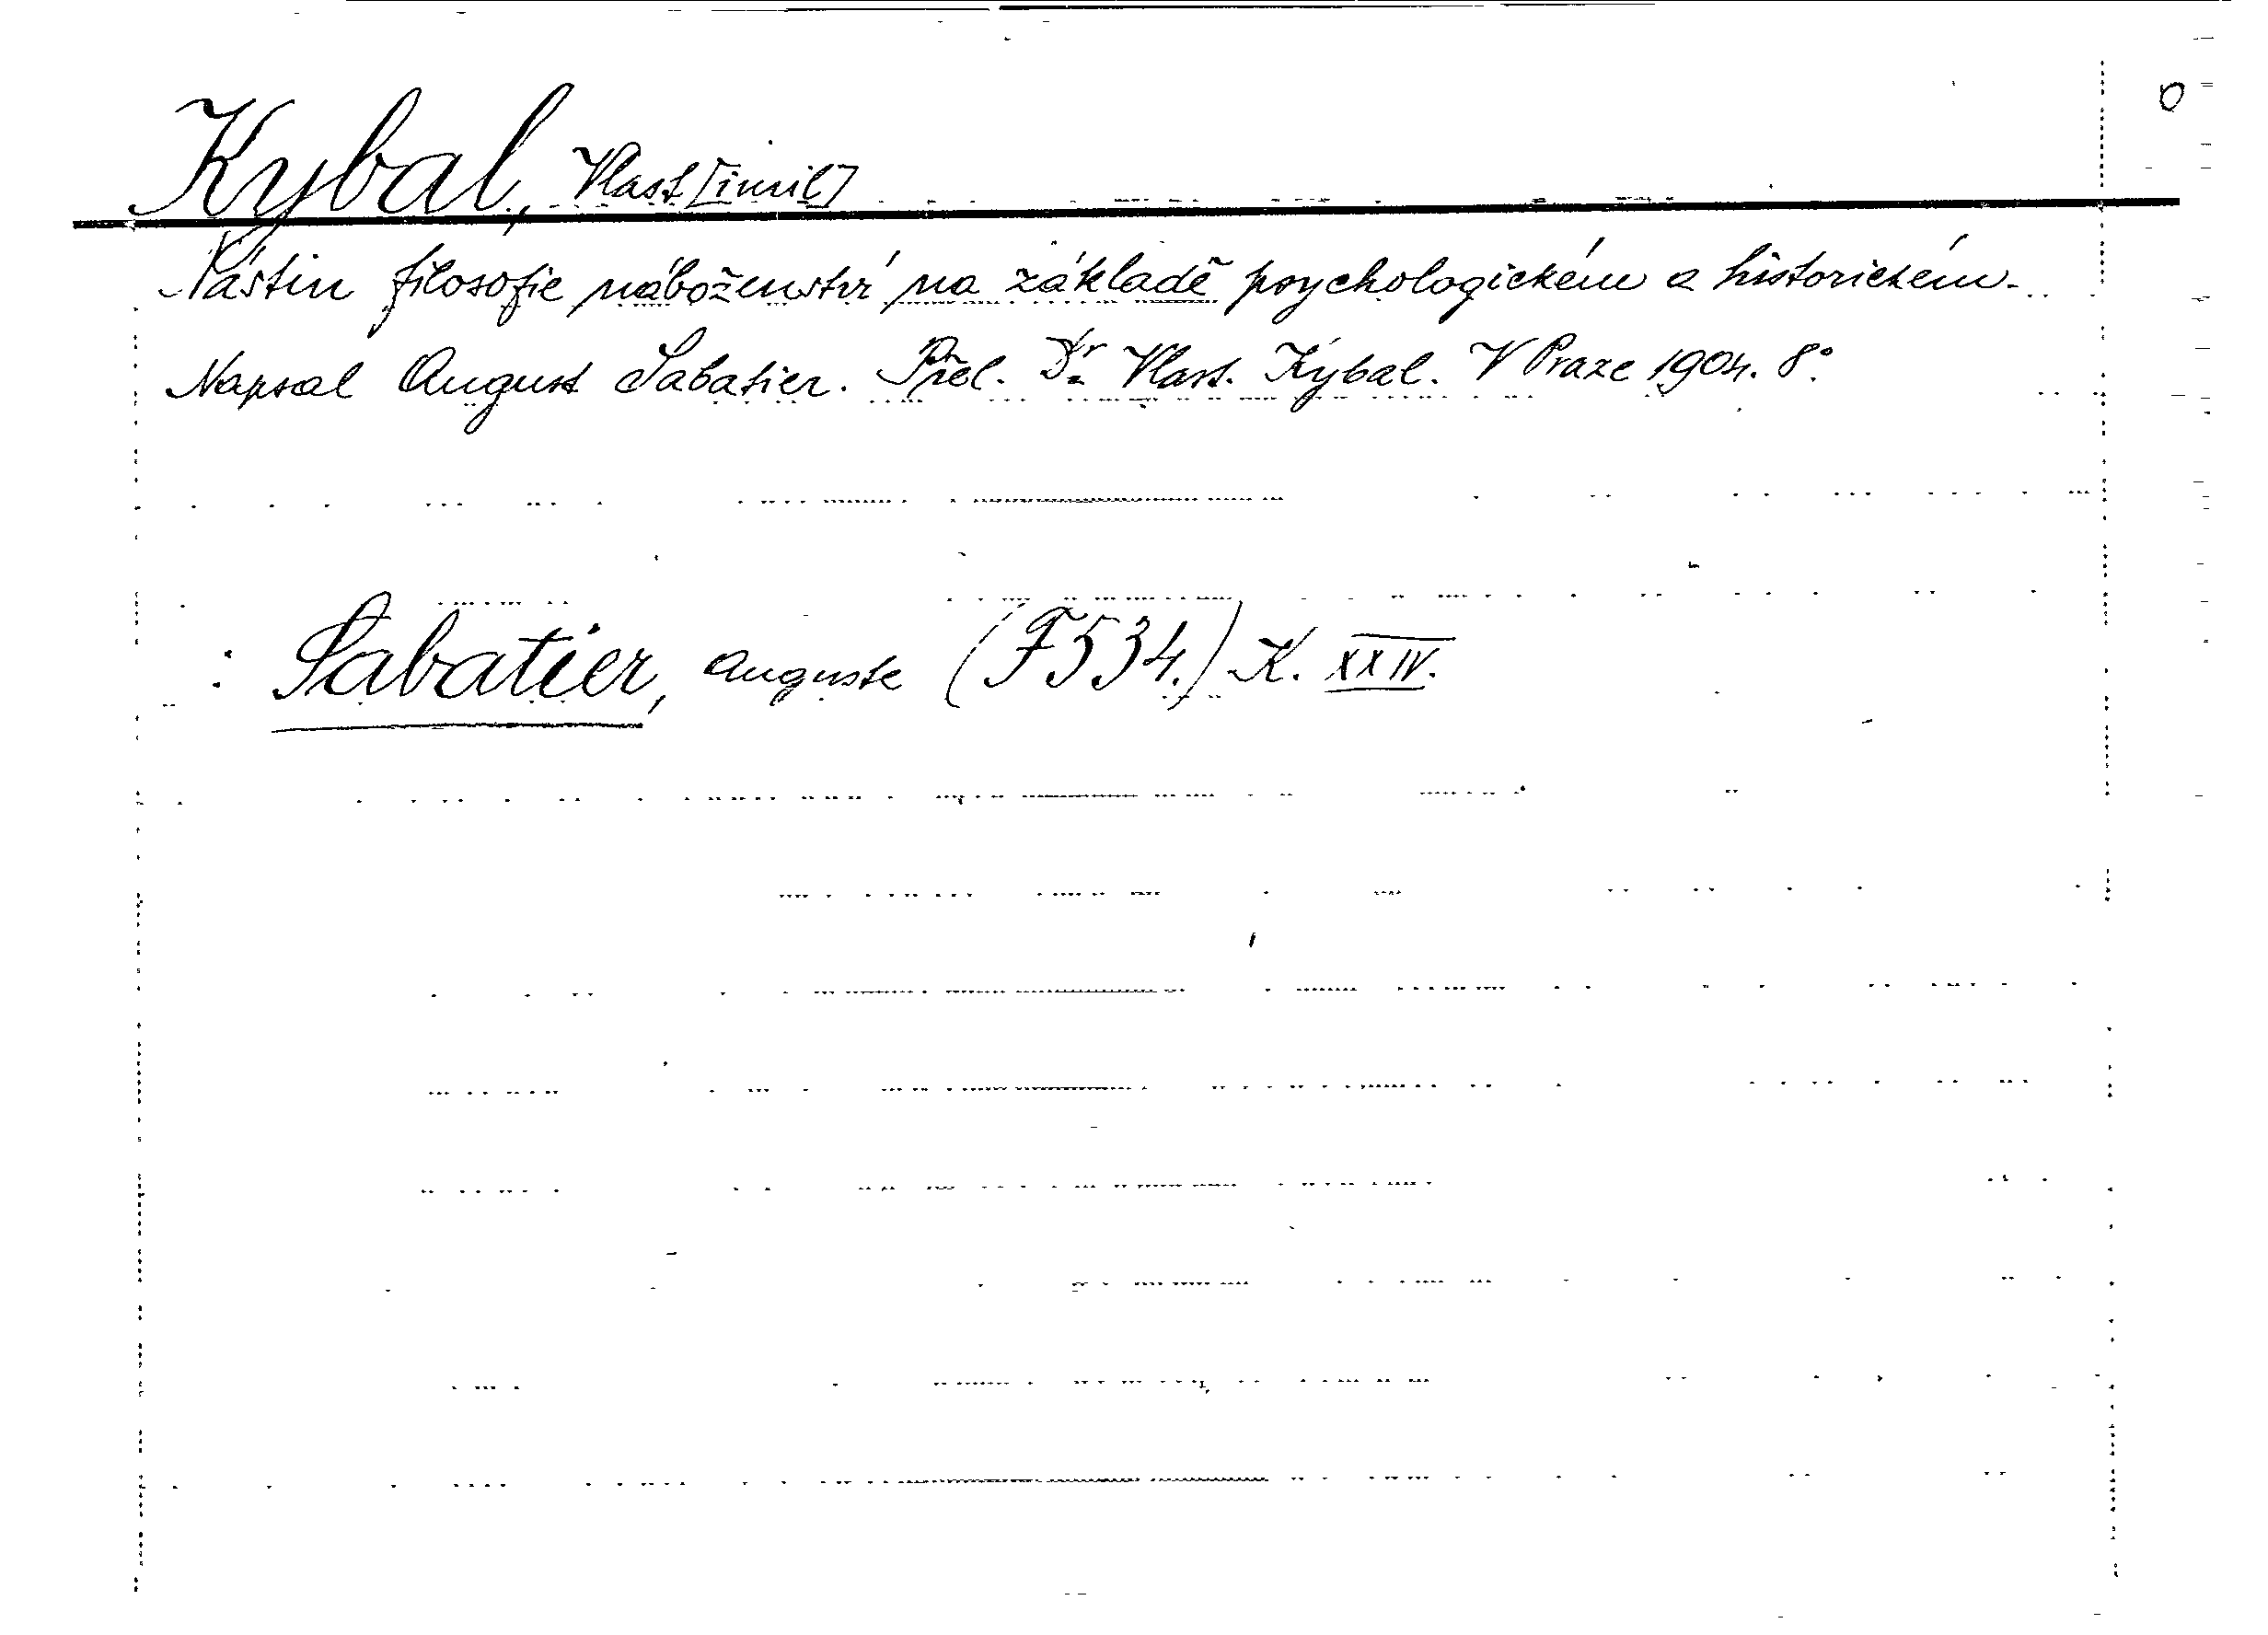 Kybal, Vlast[imil]
Nástin filosofie náboženství na základě psychologickém a historickém.
Napsal August Sabatier. Přel. Dr. Vlast. Kybal. V Praze 1904. 8°.
: Sabatier, Auguste (F534.) K. XXIV.